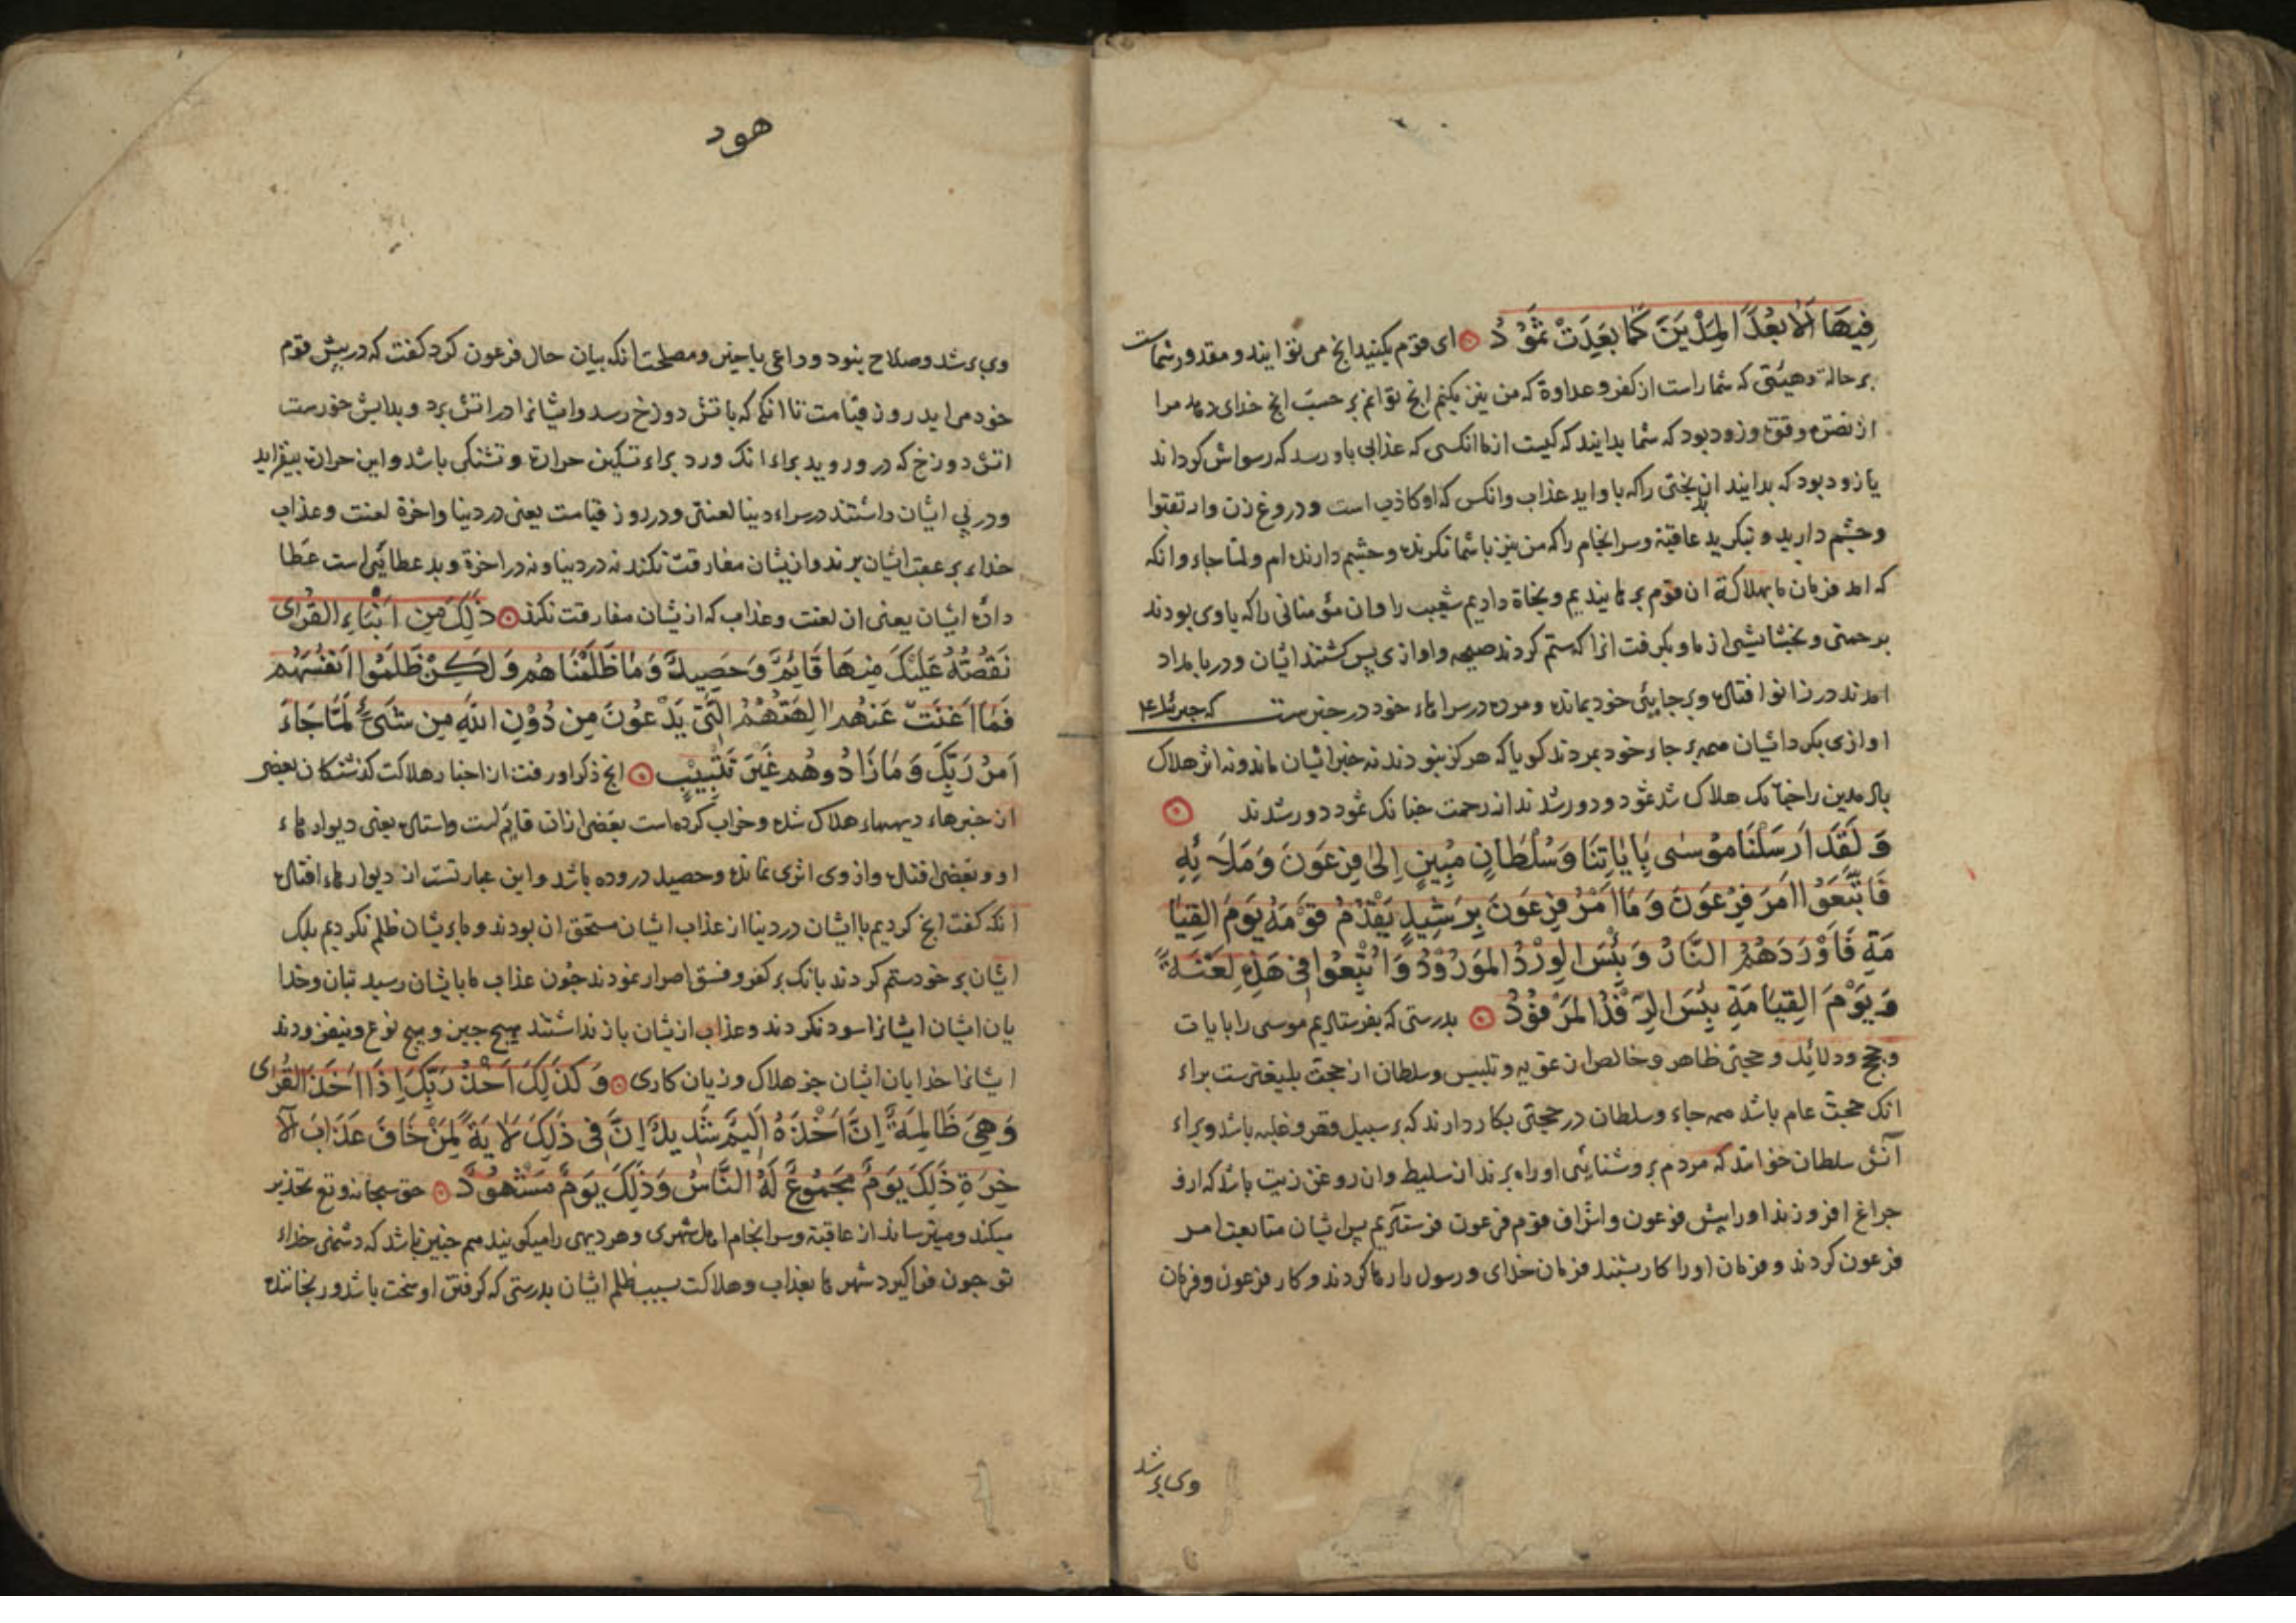 فِيهَا اَلَا بُعْدًا لِمَدْيَنَ كَمَا بَعِدَتْ ثَمُوْدُ ای قوم بکنید انج می توانید و مقدور شماست
بر حالة و هیئتی که شما راست از کفر و عداوة که من نیز بکنم انج توانم بر حسب انج خدای دهد مرا
از نصرة و قوة و زود بود که شما بدانید که کیست از ما انکسی که عذابی باو رسد که رسواش کرداند
یا زود بود که بدانید ان بدبختی را که باو اید عذاب وانکس که او کاذب است و دروغ زن وارتقبوا
و جشم دارید و بنکرید عاقبة و سرانجام را که من نیز با شما نکرنده و جشم دارنده ام ولما جاء وانکه
که امد فرمان ما بهلاکة ان قوم برهانیدیم و نجاة دادیم شعیب را وان مؤمنانی را که با وی بودند
برحمتی و بخشایشی از ما و بکرفت انرا که ستم کردند صیحه و اوازی بس کشتند ایشان و در بامداد
امدند در زانو افتاده و بر جایئی خود بمانده و مرده در سراهاء خود در خبر ست که جبرئیل ع م
اوازی بکرد ایشان همه بر جاء خود بمردند کویا که هرکز نبودند نه خبر ایشان ماند و نه اثر هلاک
باد مدین را جنانک هلاک شد ثمود و دور شدند از رحمت جنانک ثمود دور شدند
وَ لَقَدْ اَرْسَلْنَا مُوْسٰی بِاٰیَاتِنَا وَسُلْطَانٍ مُبِینٍ اِلیٰ فِرْعَوْنَ وَمَلَائِهِ
فَاتَّبَعُوْا اَمْرَ فِرْعَوْنَ وَمَا اَمْرُ فِرْعَوْنَ بِرَشِیدٍ یَقْدُمُ قَوْمَهُ یَوْمَ القِیَا
مَةِ فَاَوْرَدَهُمُ النَّارَ وَبِئْسَ الوِرْدُ المَوْرُوْدُ وَاُتْبِعُوا فِی هَذِهِ لَعْنَةً
وَ یَوْمَ القِیَامَةِ بِئْسَ الرِّفْدُ المَرْفُوْدُ بدرستی که بفرستادیم موسی را بایات
و حجج و دلائل و حجتی ظاهر و خالص از تمویه و تلبیس و سلطان از حجت بلیغترست براء
انک حجت عام باشد همه جاء و سلطان در حجتی بکار دارند که بر سبیل قهر و غلبه باشد و براء
آنش سلطان خوانند که مردم بروشنایئی او راه برند از سلیط وان روغن زیت باشد که ازو
جراغ افروزند اورا بیش فرعون و اشراف قوم فرعون فرستادیم بس ایشان متابعت امر
فرعون کردند و فرمان اورا کار بستند فرمان خدای و رسول را رها کردند و کار فرعون و فرمان
وی بر شد
هود
وی بر شد و صلاح نبود و داعی باخیر و مصلحت انکه بیان حال فرعون کرد کفت که در بیش قوم
خود می اید روز قیامت تا انکه که باتش دوزخ رسد و ایشانرا در اتش برد و بدابش خورست
اتش دوزخ که در ورود اید براء انک ورد براء تسکین حرارة و تشنکی باشد و این حرارت بیفزاید
و در پی ایشان داشتند در سراء دنیا لعنتی و در روز قیامت یعنی در دنیا و اخرة لعنت و عذاب
خداء بر عقب ایشان برند و از یشان مفارقت نکند نه در دنیا و نه در اخرة و بد عطایئی است عطا
داده ایشان یعنی ان لعنت و عذاب که از یشان مفارقت نکند ذٰلِكَ مِن اَنْبَاءِ القُرٰی
نَقُصُّهُ عَلَیْكَ مِنْهَا قَایِمٌ وَحَصِیدٌ وَمَا ظَلَمْنَاهُمْ وَلٰكِنْ ظَلَمُوا اَنْفُسَهُم
فَمَا اَغْنَتْ عَنْهُم اٰلِهَتُهُمُ الَّتِی یَدْعُوْنَ مِن دُوْنِ اللهِ مِن شَیْءٍ لَمَّا جَاءَ
اَمْرُ رَبِّكَ وَمَا زَادُوهُم غَیْرَ تَتْبِیْبٍ انج ذکر او رفت از اخبار هلاکت کذشتکان بعضی
ان خبرهاء دیههاء هلاک شده و خراب کرده است بعضی ازان قایم است و استاده یعنی دیوارهاء
او و بعضی افتاده و از وی اثری نمانده و حصید دروده باشد و این عبارتست از دیوارهاء افتاده
انکه کفت انج کردیم باایشان در دنیا از عذاب ایشان مستحق ان بودند و ما بریشان ظلم نکردیم بلک
ایشان بر خود ستم کردند بانک بر کفر و فسق اصرار نمودند جون عذاب ما بایشان رسید بتان و خدا
یان ایشان ایشانرا سود نکردند و عذاب از یشان باز نداشتند بهیج جیز و هیج نوع و نیفزودند
ایشانرا خدایان ایشان جز هلاک و زیان کاری وَ كَذٰلِكَ اَخْذُ رَبِّكَ اِذَا اَخَذَ القُرٰی
وَ هِیَ ظَالِمَةٌ اِنَّ اَخْذَهُ اَلِیْمٌ شَدِیدٌ اِنَّ فِی ذٰلِكَ لَاٰیَةً لِمَنْ خَافَ عَذَابَ الْاٰ
خِرَةِ ذٰلِكَ یَوْمٌ مَجْمُوعٌ لَهُ النَّاسُ وَذٰلِكَ یَوْمٌ مَشْهُوْدٌ حق سبحانه و تع تحذیر
میکند و میترساند از عاقبة و سرانجام اهل شهری و هر دیهی را میکویند هم جنین باشد که دشمنی خداء
تو جون فرا کیرد شهرها بعذاب و هلاکت بسبب ظلم ایشان بدرستی که کرفتن او سخت باشد و رنجاننده